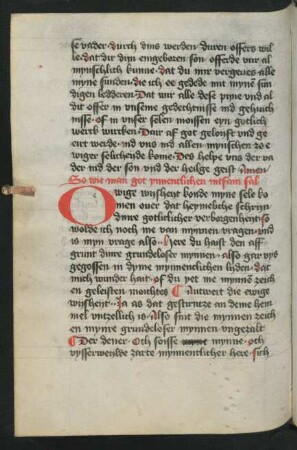 se vader durch dins werden duren offers wil
le dat dir din eingeboren son offerde vur al
mynschlich kunne dat du mir vergeues alle
myne sunden die ich ee gedede mit mynen sun
digen lederen Dat wir alle dese pyne vnd al
dit offer in vnseme gedechtnisse vnd gehuch
nisse of in vnser selen moissen eyn gotlich
werck wircken Dair af got geloift vnd ge
eirt werde vnd vns vnd allen mynschen zo e
wiger selicheide kome Des helpe vns der va
der vnd der son vnd der heilge geist Amen
So wie man got mynnentlichen sal
O wige wijsheit konde myne sele ko
men ouer dat heymeliche schrin
dinre gotlicher verborgenheit so
wolde ich noch me van mynnen vragen vnd
is myn vrage also Here du haist den aff
grunt dinre grundeloser mynnen also gar vys
gegossen in dyme mynnenclichen liden dat
mich wunder hait of du yet me mynnen zeich
en geleisten moichtes Antwert die ewige
wijsheit Ja as dat gesteruze an deme hem
mel vnzellich is Also sint die mynnen zeich
en myner grundeloser mynnen vngezalt
Der dener Och soisse mynne och
vysserweilde zarte mynnentlicher here sich